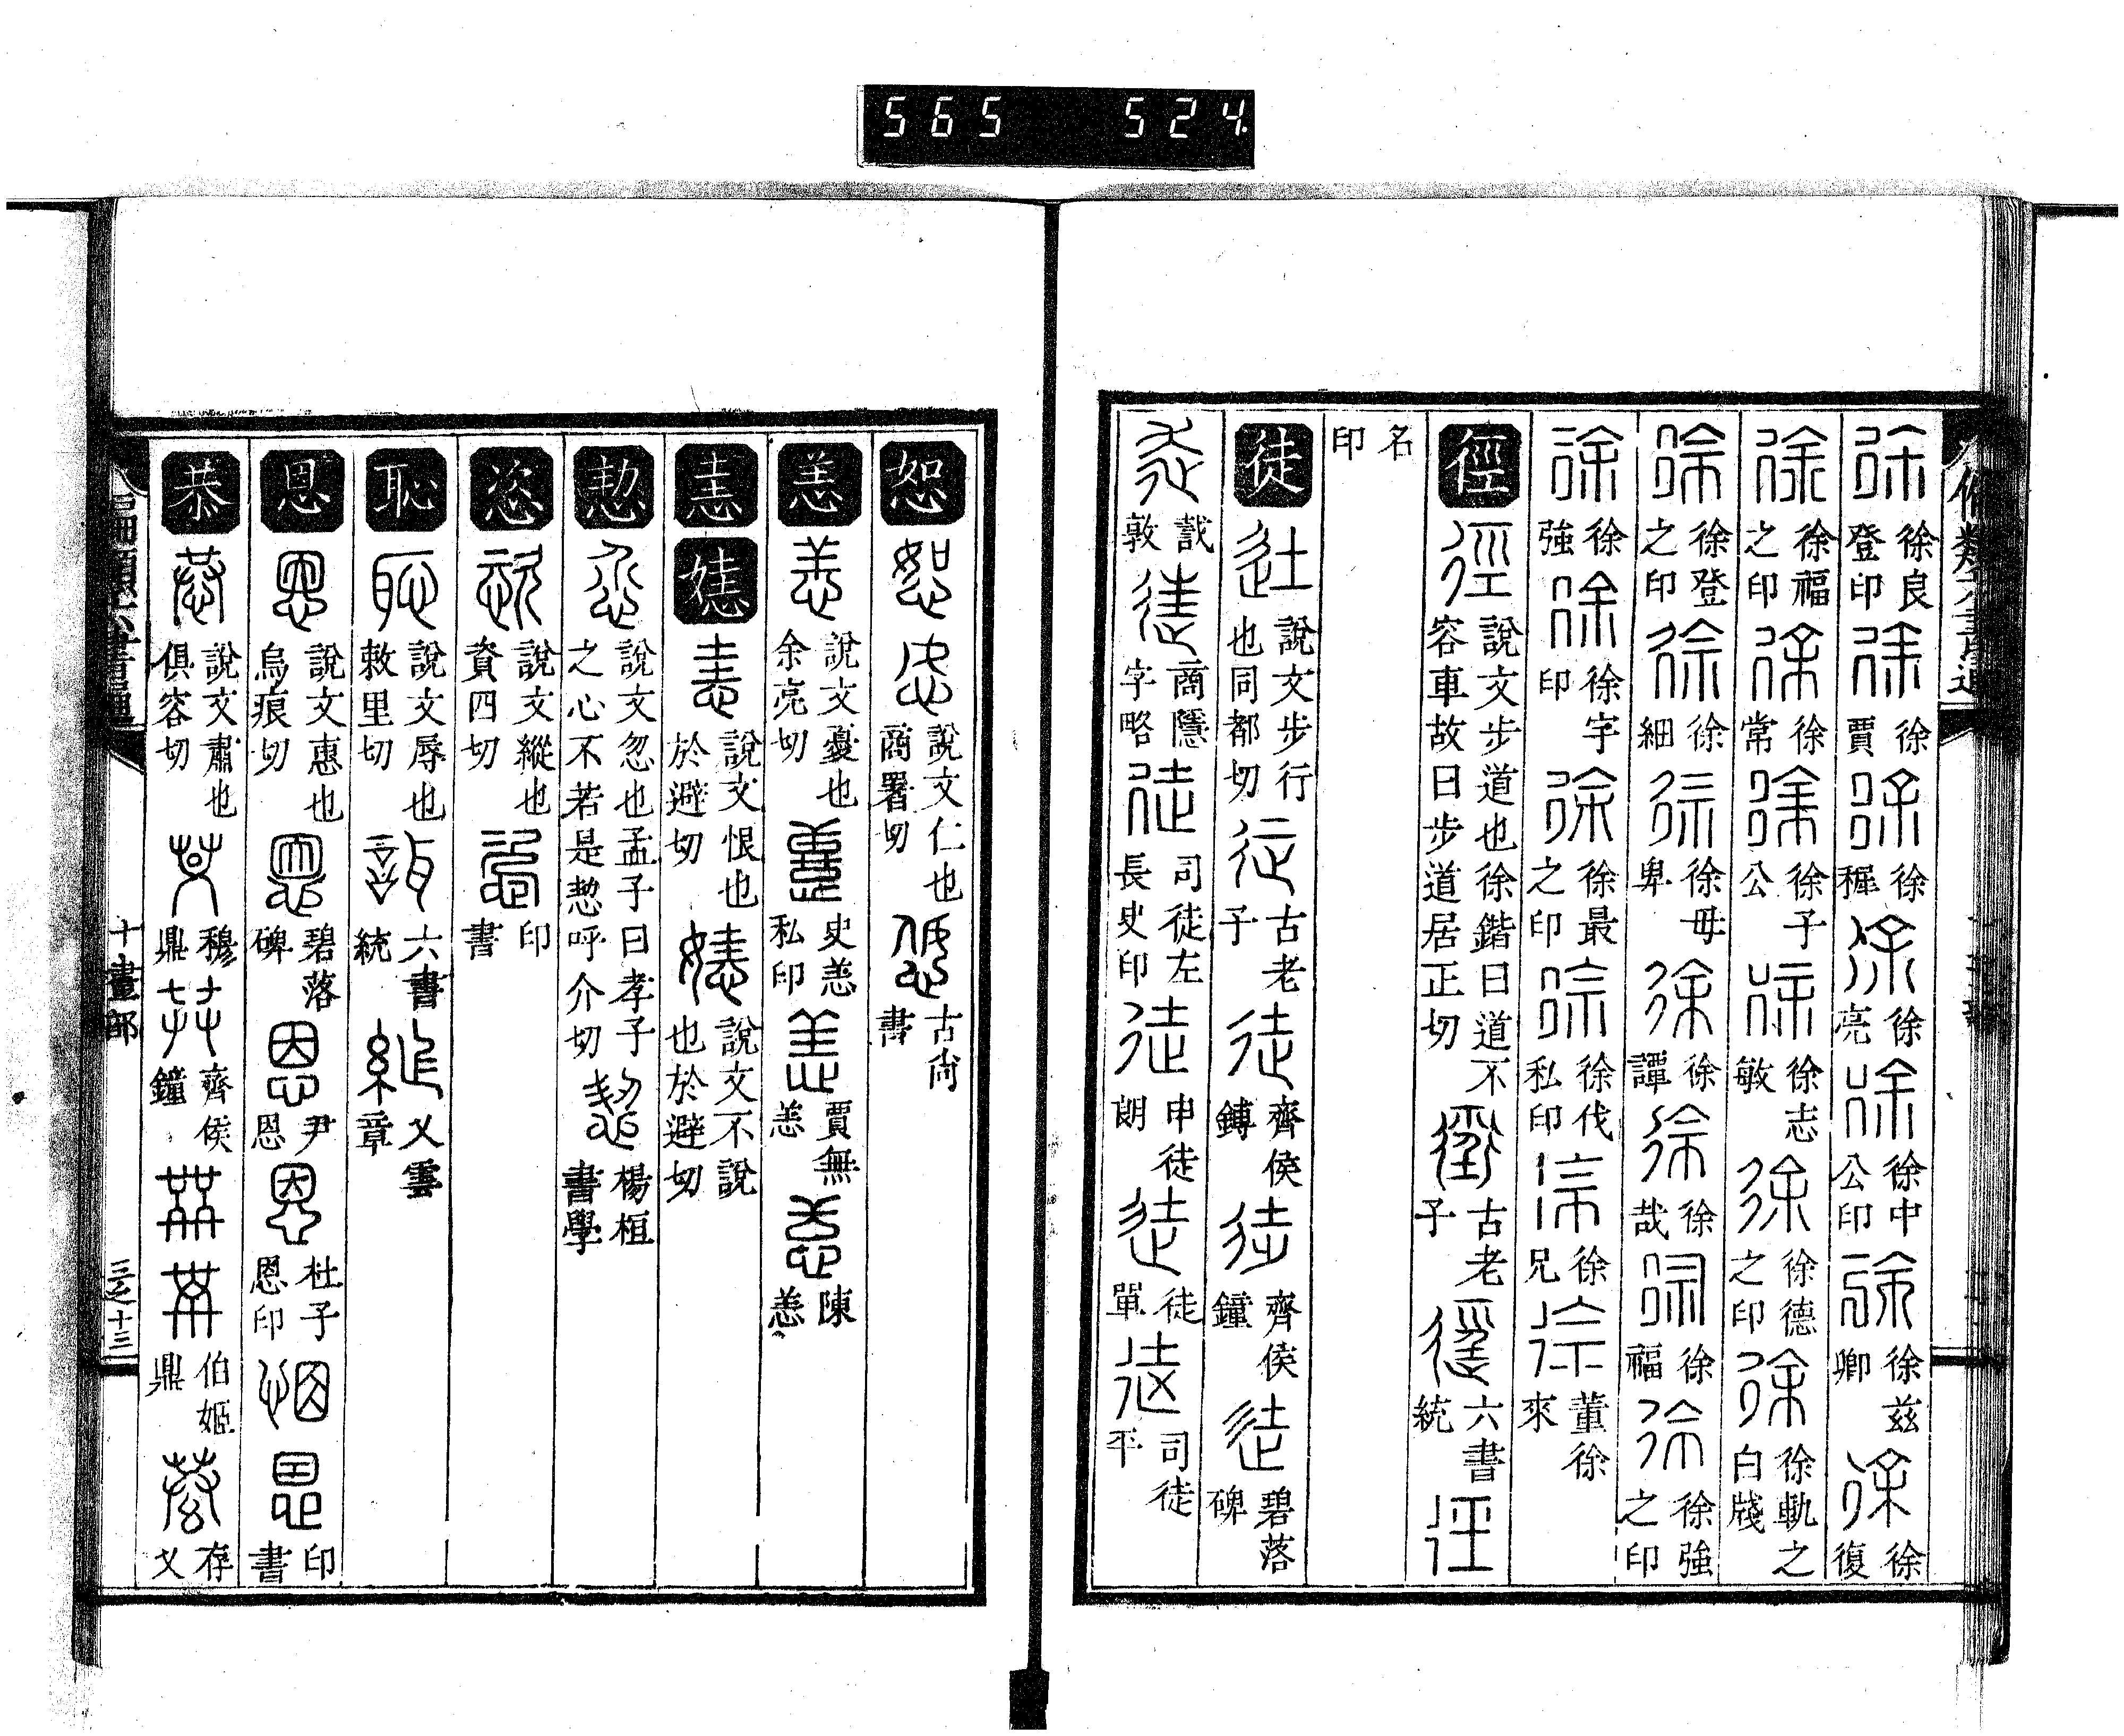 565 524
徐徐良登印徐徐賈徐徐穉徐徐亮徐徐中公印徐徐茲卿徐徐復
徐徐福之印徐徐常徐徐子公徐徐志敏徐徐德之印徐徐軌之白牋
徐徐登之印徐徐細徐徐毋卑徐徐譚徐徐哉徐徐福徐徐強之印
徐徐強徐徐字印徐徐最之印徐徐伐私印徐徐兄徐董徐來
徑徑說文步道也徐鍇曰道不容車故曰步道居正切徑古老子徑六書統徑
名印
徒徒說文步行也同都切徒古老子徒齊侯鎛徒齊侯鐘徒碧落碑
徒敦徒商隱字略徒司徒左長史印徒申徒朗徒徒單徒司徒平
恕恕說文仁也商署切古尚書
恙恙說文憂也余亮切恙史恙私印恙賈無恙恙陳恙
恚說文恨也於避切說文不說也於避切
說文忽也孟子曰孝子之心不若是恝呼介切楊桓書學
恣恣說文縱也資四切恣印書
恥恥說文辱也敕里切六書統義雲章
恩恩說文惠也烏痕切恩碧落碑恩尹恩恩杜子恩印恩恩印書
恭恭說文肅也俱容切恭穆鼎恭齊侯鐘恭恭伯姬鼎恭存乂
十畫部
三之十三